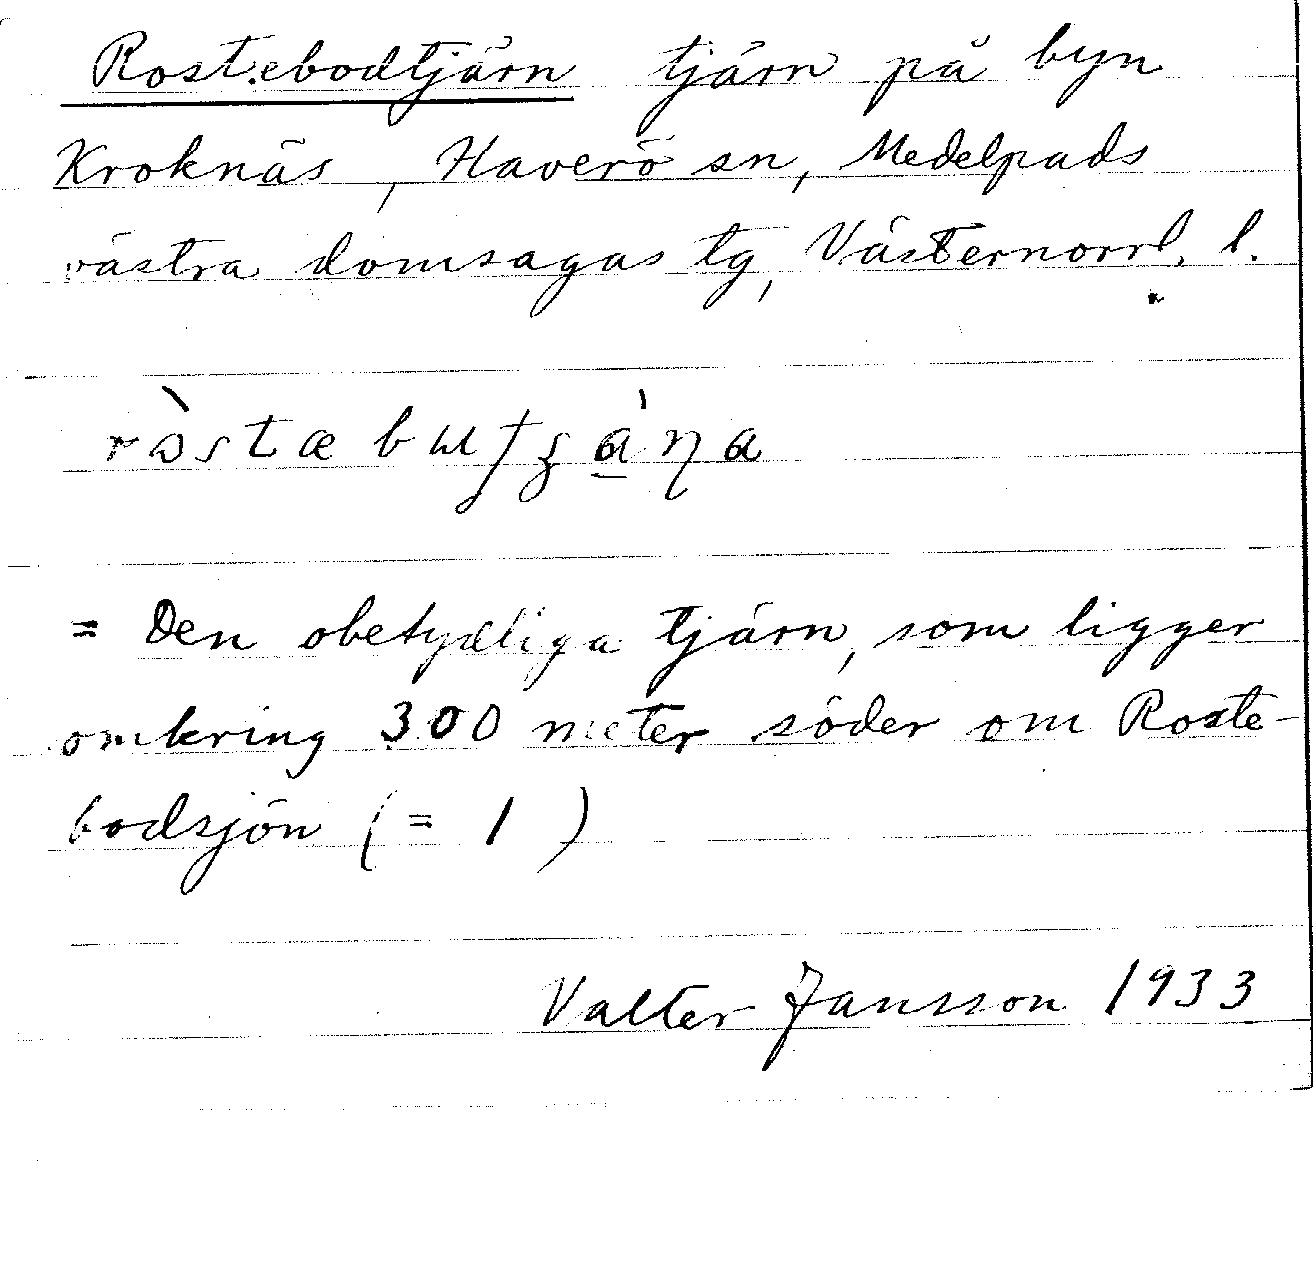 Rostebodtjärn tjärn på byn
Kroknäs, Haverö sn, Medelpads
västra domsagas tg, Västernorrl. l.
= Den obetydliga tjärn, som ligger
omkring 300 meter söder om Roste-
bodsjön (= 1 )
Valter Jansson 1933